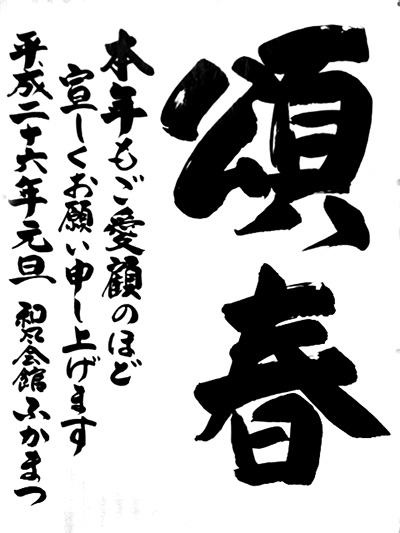 頌春
本年もご愛顧のほど
宜しくお願い申し上げます
平成二十六年元旦 和風会館ふかまつ